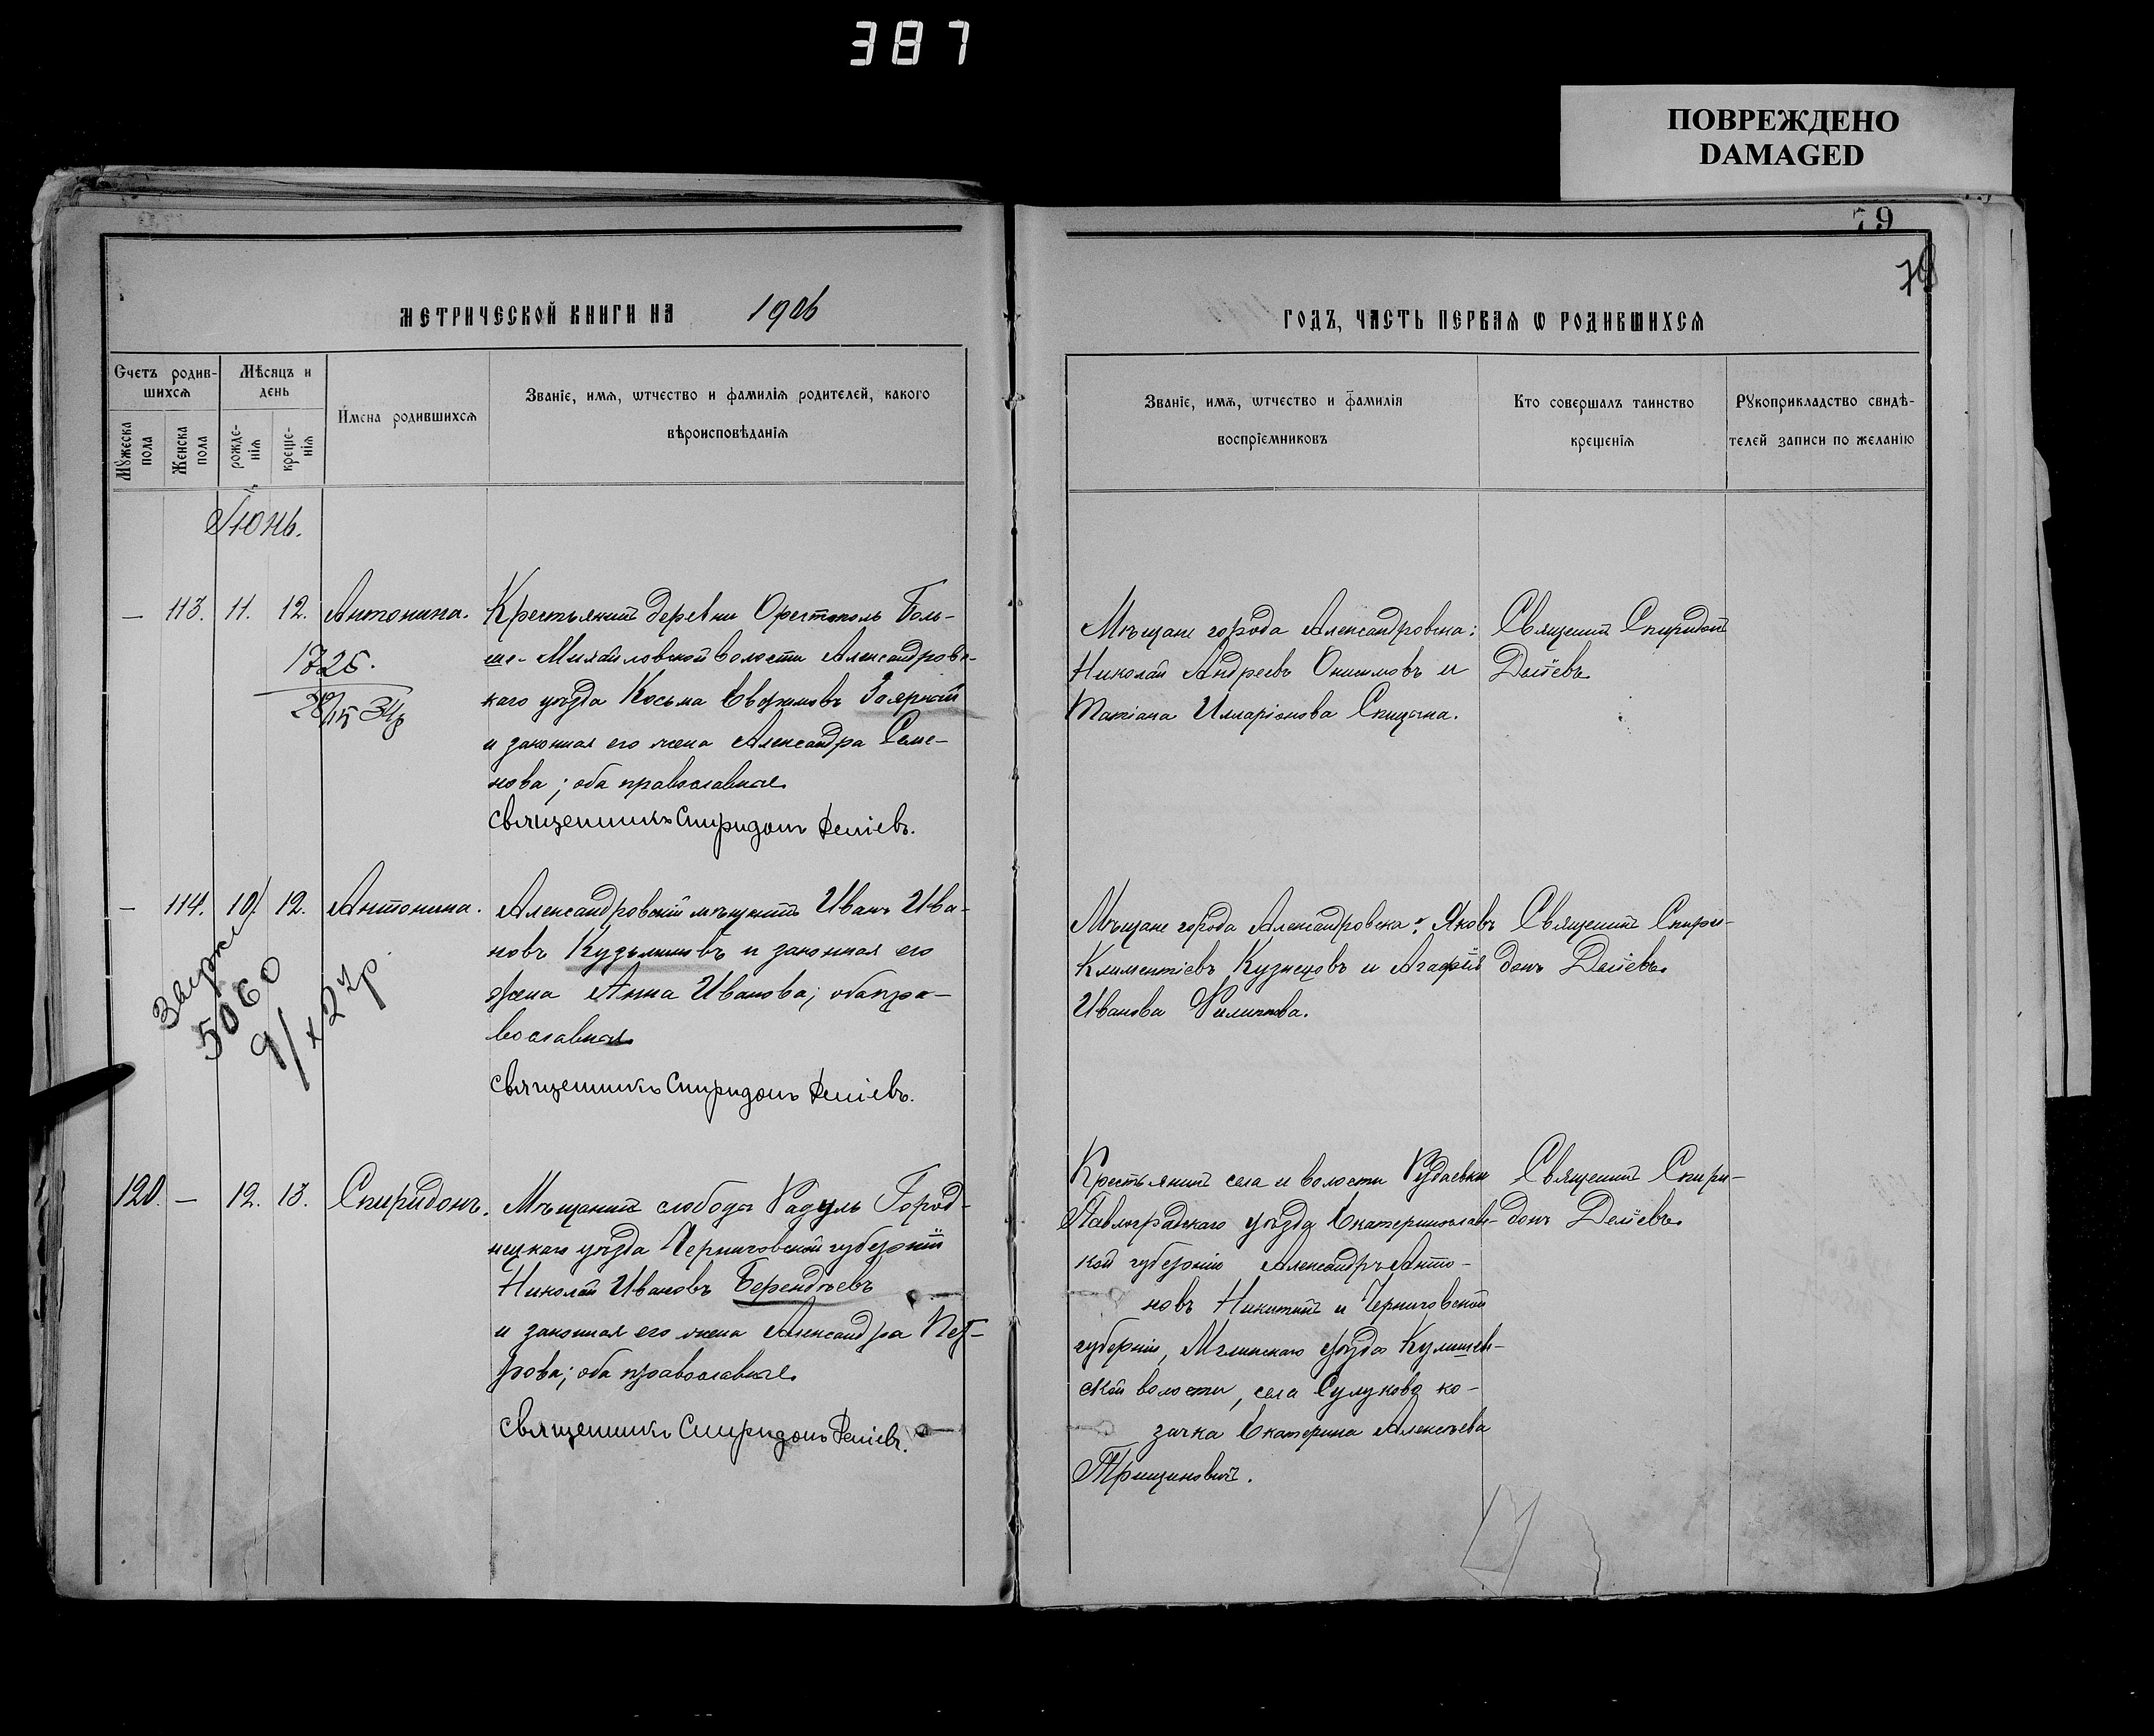 387
ПОВРЕЖДЕНО
DAMAGED
79
МЕТРИЧЕСКОЙ КНИГИ НА 1906
ГОДЪ, ЧАСТЬ ПЕРВАЯ Ѡ РОДИВШИХСЯ
Счетъ родив-
шихсѧ
Мѣсяцъ и
день
Имена родившихсѧ
Званіе, имѧ, ѡтчество и фамилія родителей, какого
вѣроисповѣданія
Мꙋжеска
пола
Женска
пола
рожде-
нія
креще-
нія
Званіе, имѧ, ѡтчество и фамилія
воспріемниковъ
Кто совершалъ таинство
крещенія
Рꙋкоприкладство свидѣ-
телей записи по желанію
Іюнь.
— 113. 11. 12. Антонина.
1725.
Крестьянинъ деревни Орестополь Боль-
ше-Михайловской волости Александровс-
каго уѣзда Косьма Евфимовъ Заярный
и законная его жена Александра Семе-
нова; оба православные.
Священникъ Спиридонъ Деліевъ.
Мѣщане города Александровска:
Николай Андреевъ Онисимовъ и
Татіана Илларіонова Спицына.
Священникъ Спиридонъ
Деліевъ
— 114. 10. 12. Антонина.
5060
Александровскій мѣщанинъ Иванъ Ива-
новъ Кузьминовъ и законная его
жена Анна Иванова; оба пра-
вославные.
Священникъ Спиридонъ Деліевъ.
Мѣщане города Александровска: Яковъ
Климентіевъ Кузнецовъ и Агафія
Иванова Филиппова.
Священникъ Спири-
донъ Деліевъ.
120. — 12. 13. Спиридонъ.
Мѣщанинъ слободы Радуль Город-
ницкаго уѣзда Черниговской губерніи
Николай Ивановъ Берендѣевъ
и законная его жена Александра Пет-
рова; оба православные.
Священникъ Спиридонъ Деліевъ.
Крестьянинъ села и волости Рудаевки
Павлоградскаго уѣзда Екатеринослав-
кой губерніи Александръ Анто-
новъ Никитинъ и Черниговской
губерніи, Мглинскаго уѣзда
ской волости, села ко-
зачка Екатерина Алексѣева
Священникъ Спири-
донъ Деліевъ.